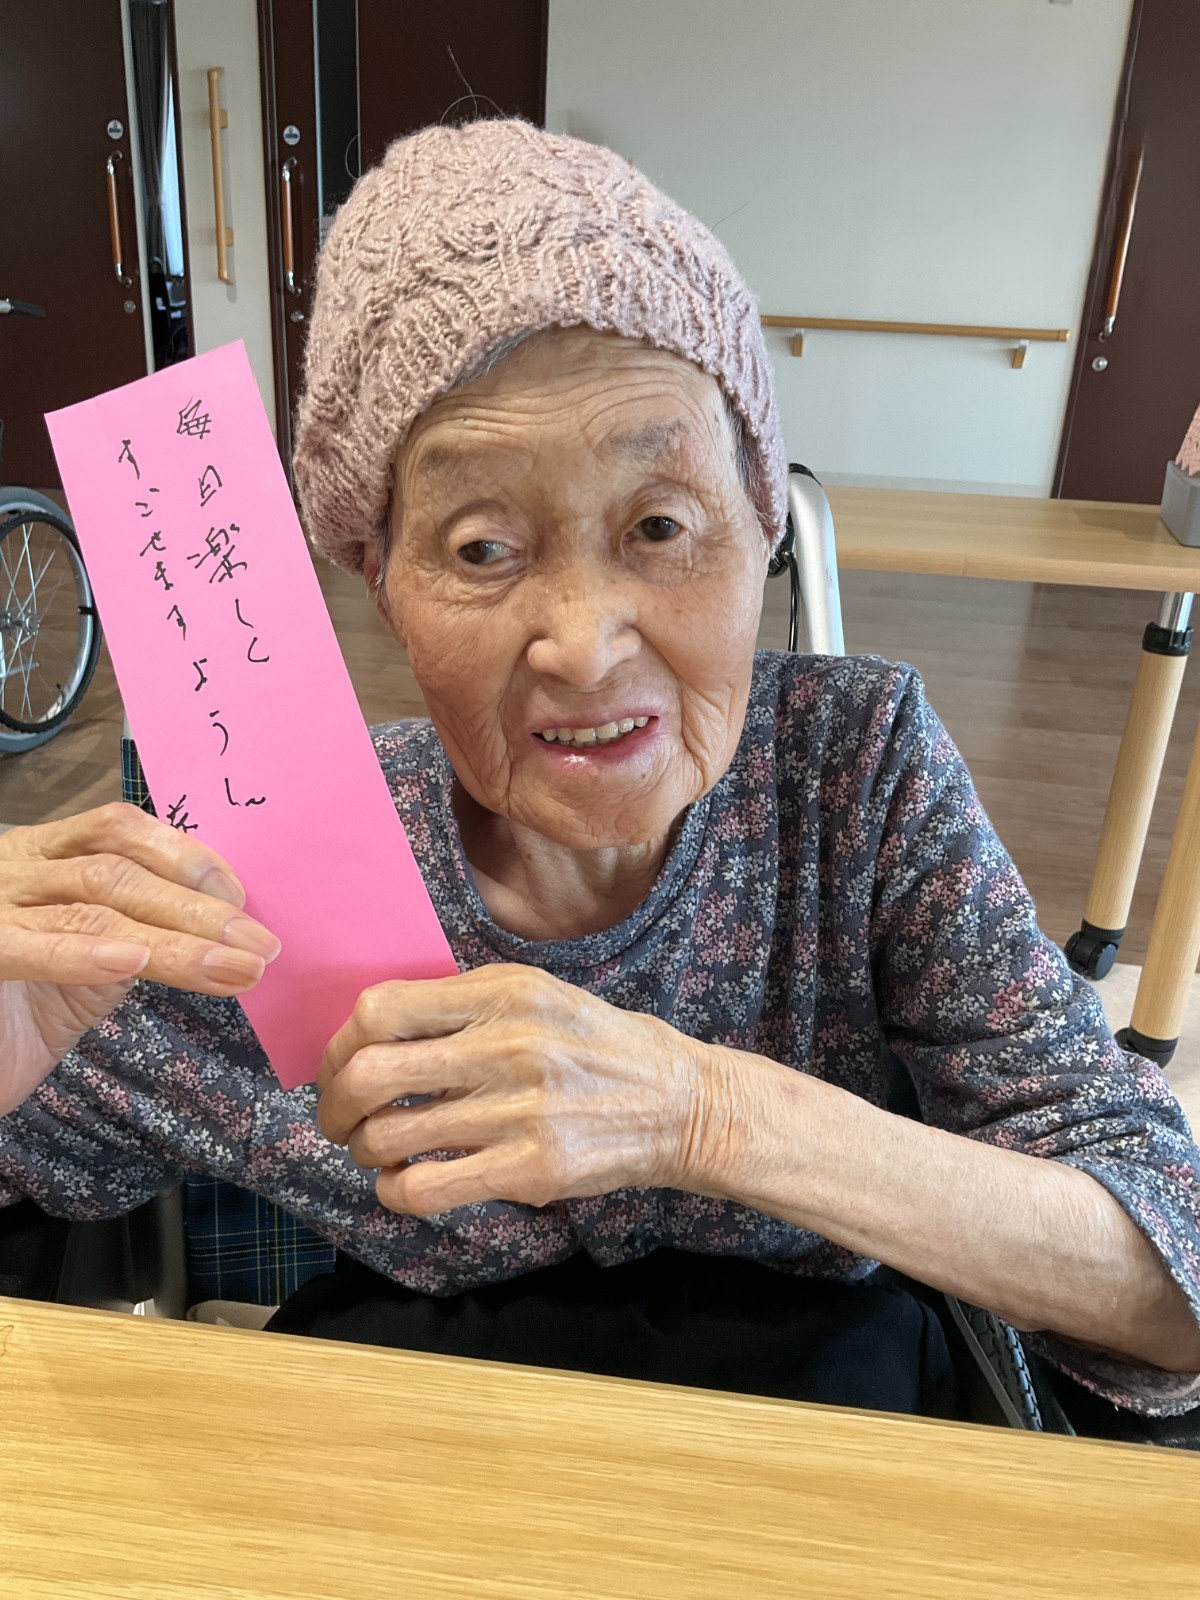 毎日楽しく
すごせますように